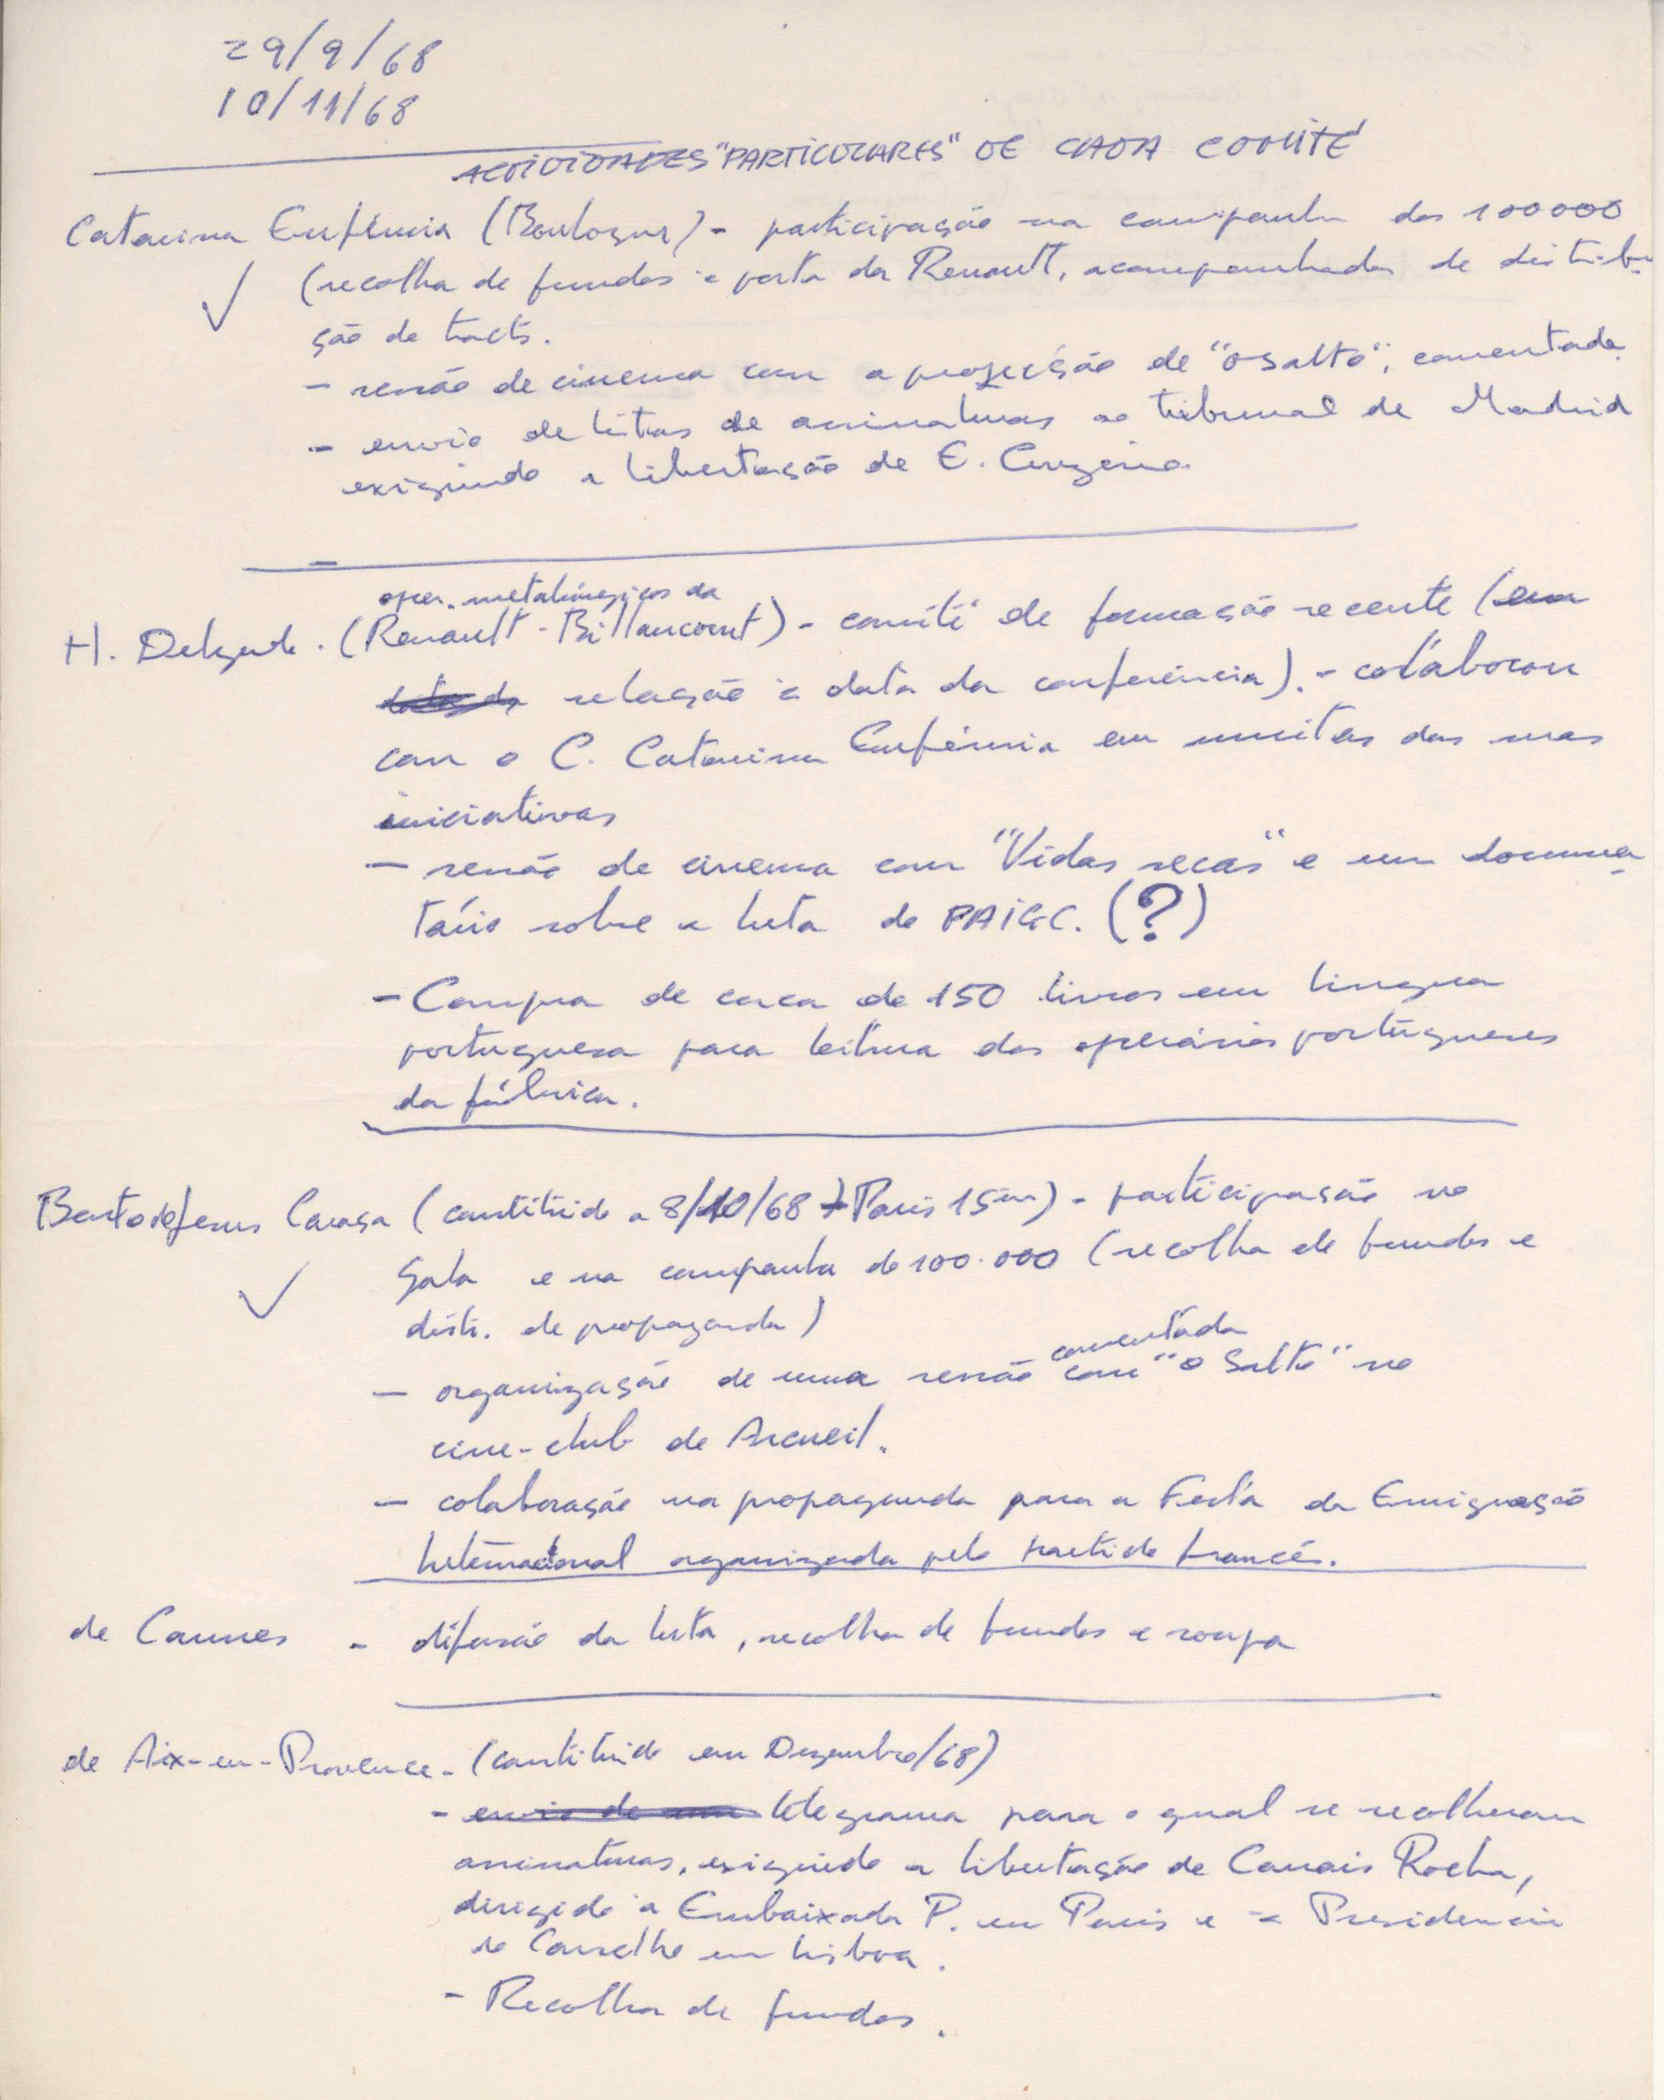 29/9/68
10/11/68
ACTIVIDADES "PARTICULARES" DE CADA COMITÉ
Catarina Eufémia (Boulogne) - participação na campanha dos 100000
(recolha de fundos à porta da Renault, acompanhada de distribui
ção de tracts.
- sessão de cinema com a projecção de "O Salto", comentada.
- envio de listas de assinaturas ao tribunal de Madrid
exigindo a libertação de E.
oper. metalúrgicos da
H. Delgado. (Renault-Billancourt) - comité de formação recente (em
relação à data da conferência). - colaborou
com o C. Catarina Eufémia em muitas das suas
iniciativas
- sessão de cinema com "Vidas secas" e um documen
tário sobre a luta do PAIGC. (?)
- Compra de cerca de 150 livros em lingua
portuguesa para leitura dos operários portugueses
da fábrica.
Bento de Jesus Caraça (constituido a 8/10/68 - Paris 15ém) - participação na
Gala e na campanha dos 100.000 (recolha de fundos e
distr. de propaganda)
comentada
- organização de uma sessão com "O Salto" no
cine-club de Arcueil.
- colaboração na propaganda para a Festa da Emigração
Internacional organizada pelo partido francês.
de Cannes - difusão da luta, recolha de fundos e roupa
de Aix-en-Provence - (constituido em Dezembro/68)
- envio de um telegrama para o qual se recolheram
assinaturas, exigindo a libertação de Canais Rocha,
dirigido à Embaixada P. em Paris e à Presidencia
do Conselho em Lisboa.
- Recolha de fundos.